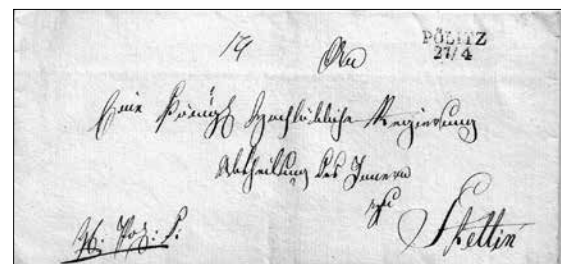 PÖLITZ
27/4
19
An
Eine Königl Hochlöbliche Regierung
Abtheilung des Innern
zu
Stettin